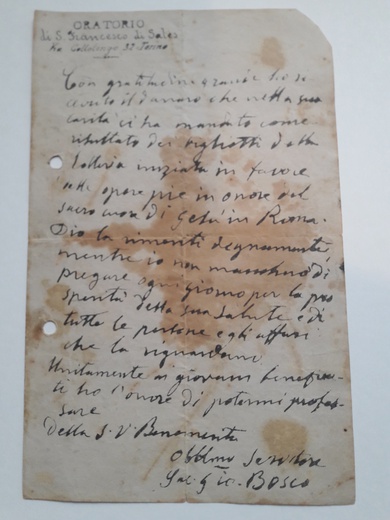 ORATORIO
di S. Francesco di Sales
Via Cottolengo 32 - Torino
Con gratitudine grande ho ri
cevuto il danaro che nella sua
carità ci ha mandato come
risultato dei viglietti della
lotteria iniziata in favore
delle opere pie in onore del
Sacro cuor di Gesù in Roma.
Dio la rimeriti degnamente,
mentre io non mancherò di
pregare ogni giorno per la pro
sperità della sua salute e di
tutte le persone e gli affari
che la riguardano.
Unitamente ai giovani benefica-
ti ho l'onore di potermi profes-
sare
Della S. V. Benemerita
Obblmo Servitore
Sac. Gio. Bosco